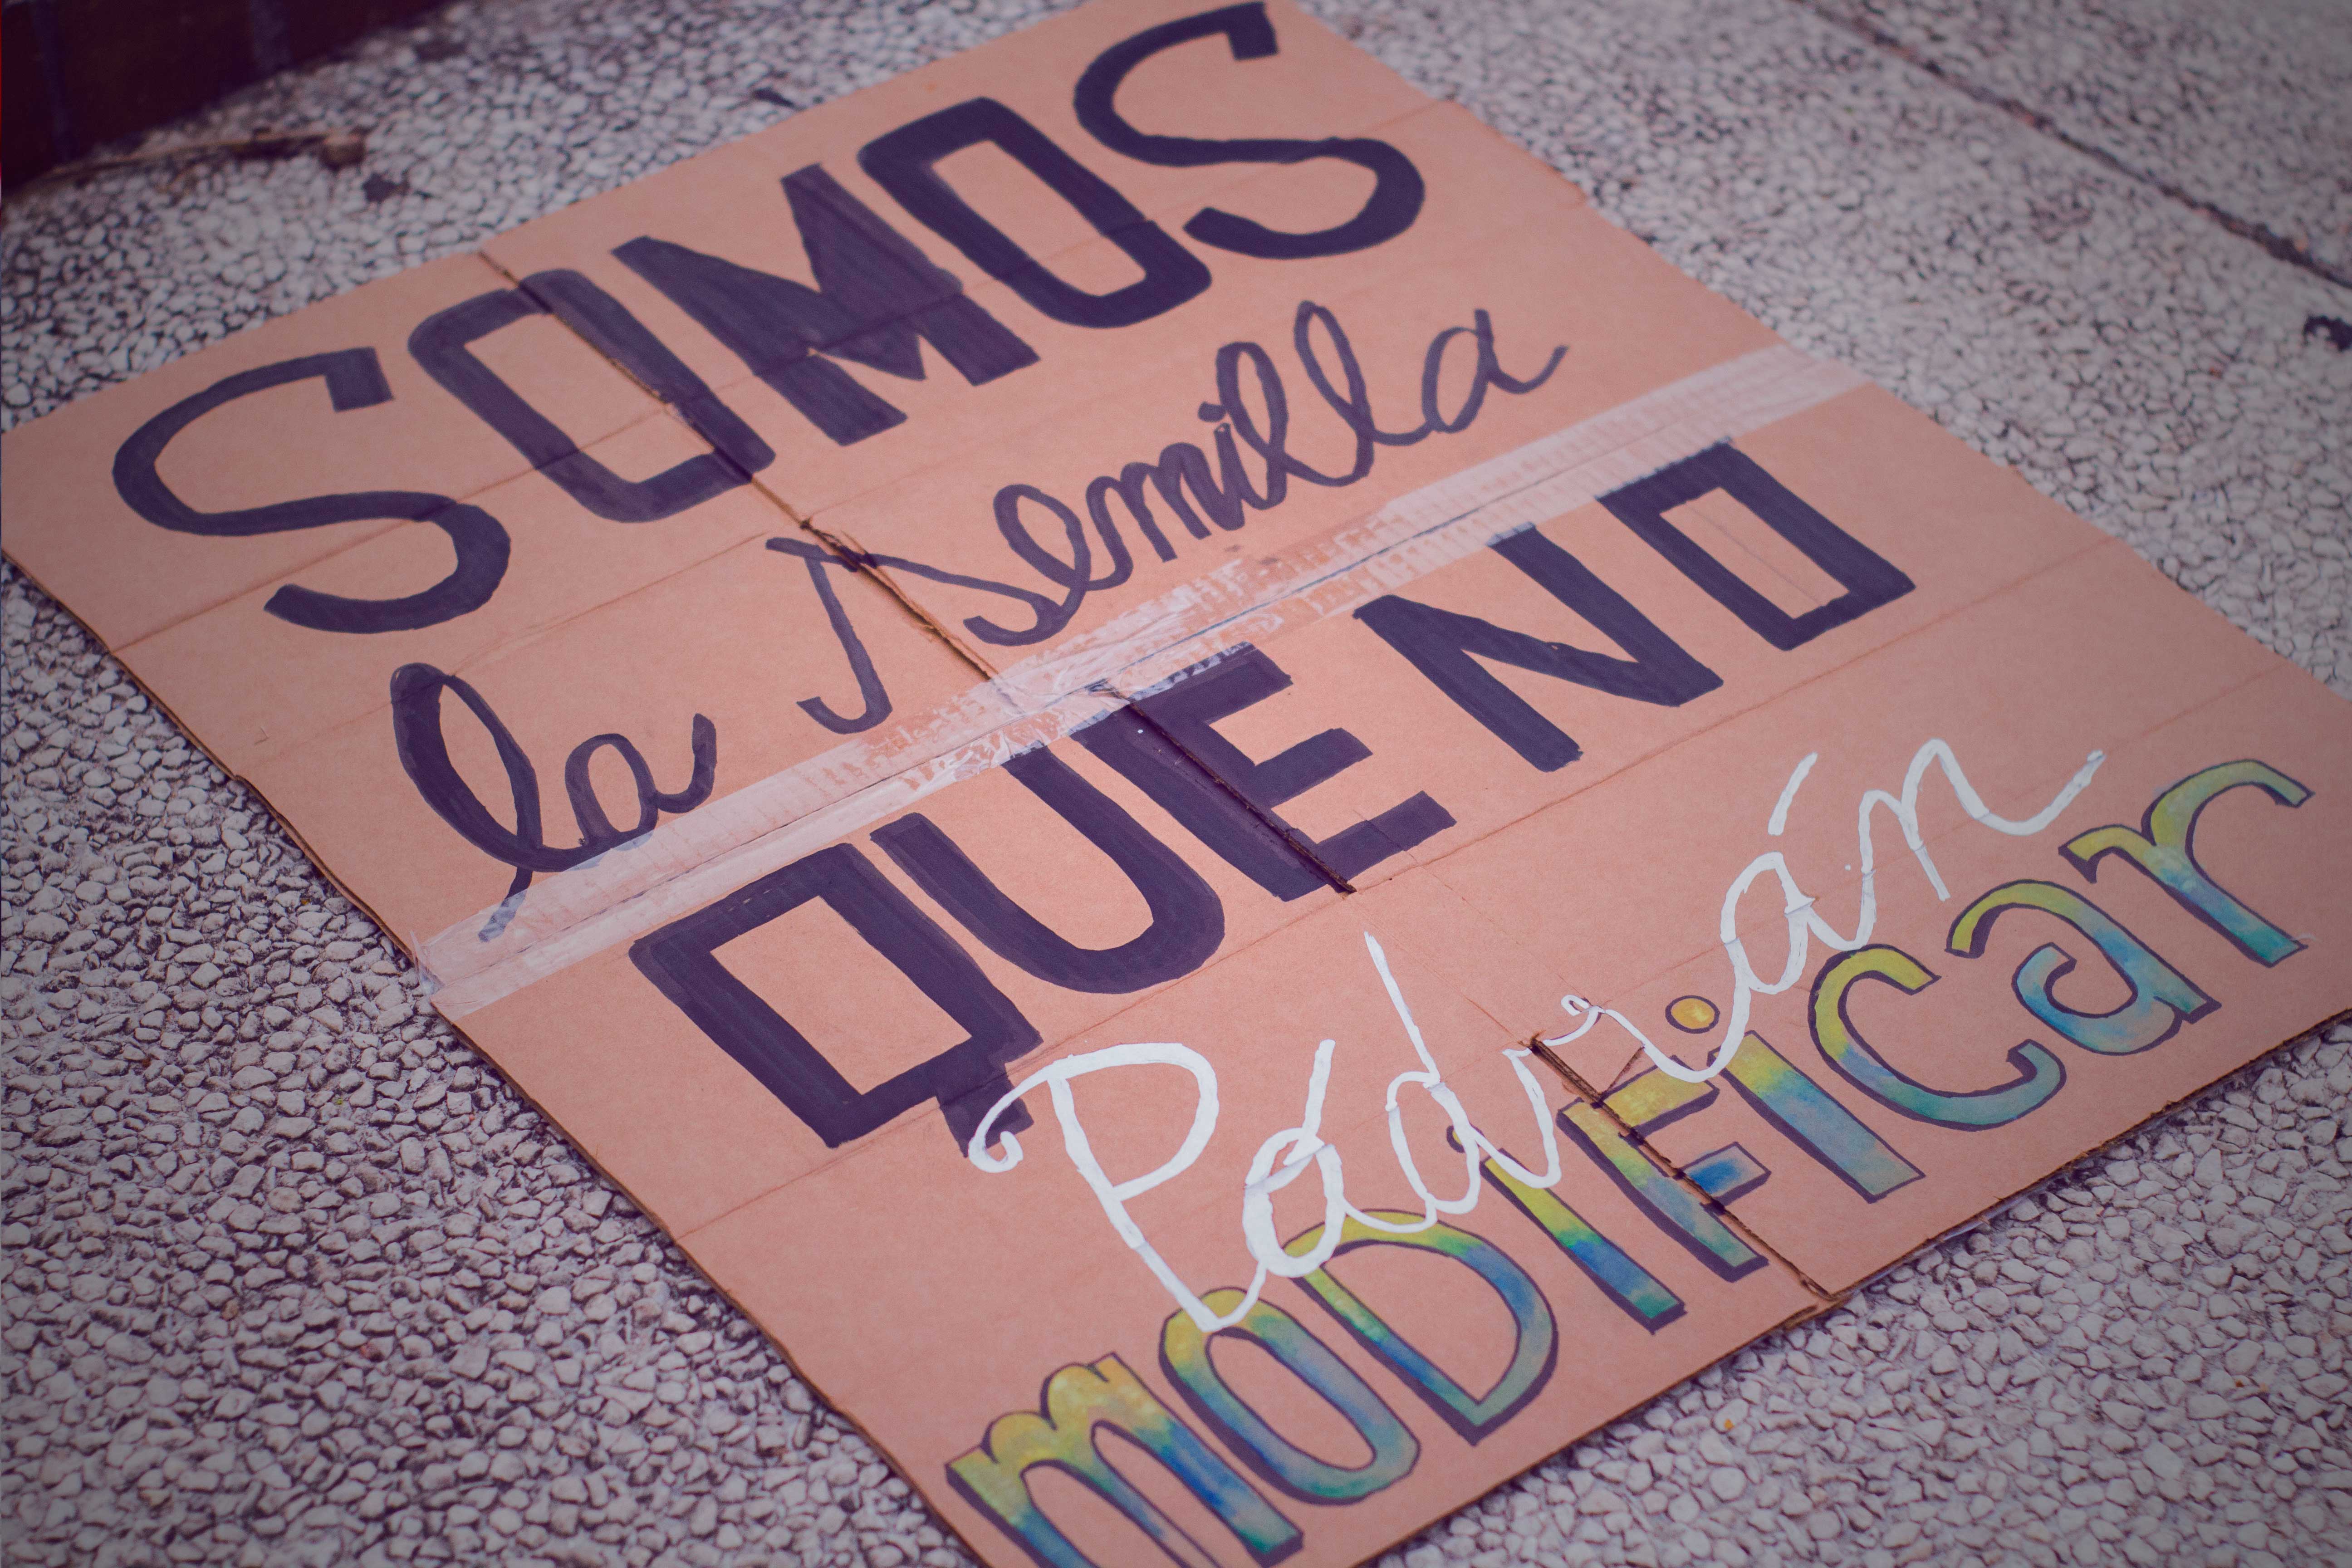 SOMOS
la semilla
QUE NO
Pódrán
moDIFicar